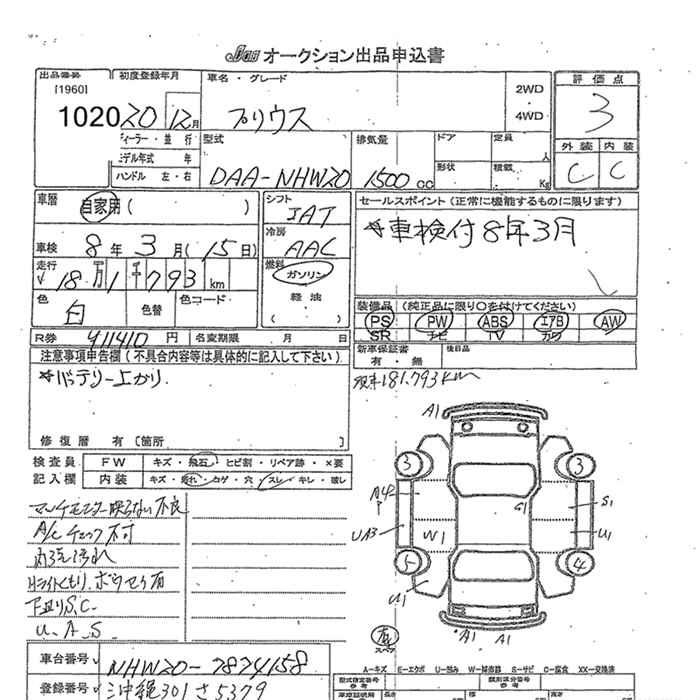 Jas オークション出品申込書
出品番号 初度登録年月 車名・グレード 2WD 評価点
[1960]
1020 20 12月 プリウス 4WD 3
ディーラー・並行 型式 排気量 ドア 定員 外装 内装
モデル年式 年 人
ハンドル 左・右 DAA-NHW20 1500cc 形状 積載 Kg C C
車暦 自家用( ) シフト JAT セールスポイント (正常に機能するものに限ります)
冷房 AAC ☆車検付8年3月
車検 8年3月(15日)
走行 18万1千793km 燃料 ガソリン
軽油
( )
色 白 色替 色コード
装備品 (純正品に限り○を付けてください)
PS PW ABS エアB AW
SR ナビ TV カワ
R券 円 名変期限 月 日 新車保証書 後日品
有・無
注意事項申告欄(不具合内容等は具体的に記入して下さい)
☆バッテリー上がり
現車181,793km
修復暦 有 [箇所 ]
検査員 FW キズ・飛石・ヒビ割・リペア跡・×要
記入欄 内装 キズ・汚れ・コゲ・穴・スレ・キレ・破レ
マルチモニター映らない不良
A/Cチェック不可
内装汚れ
Hライトくもり、ボウセイ有
下廻りS,C
U.A.S
A1
3 3
S1
G1
UA3 W1 U1
5 4
U1
A1 A1
スペア
車台番号 NHW20-7874158
登録番号 沖縄301さ5379
A-キズ E-エクボ U-凹み W-補修跡 S-サビ C-腐食 XX-交換済
型式指定番号 類別区分番号
参考 参考